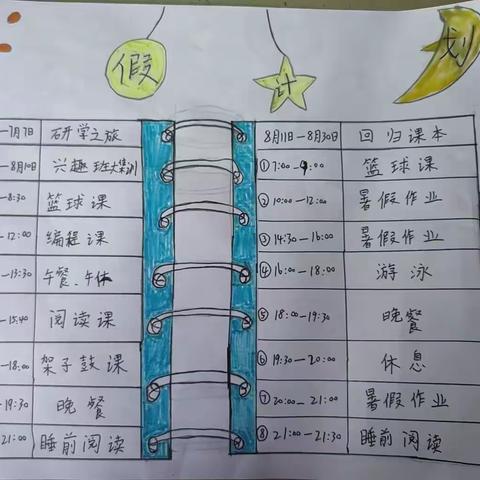 假 计 划
—7月7日 研学之旅
—8月10日 兴趣班大集训
—8:30 篮球课
—12:00 编程课
—13:30 午餐、午休
—15:40 阅读课
—18:00 架子鼓课
—19:30 晚餐
21:00 睡前阅读
8月11日—8月30日 回归课本
①7:00—9:00 篮球课
②10:00—12:00 暑假作业
③14:30—16:00 暑假作业
④16:00—18:00 游泳
⑤18:00—19:30 晚餐
⑥19:30—20:00 休息
⑦20:00—21:00 暑假作业
⑧21:00—21:30 睡前阅读